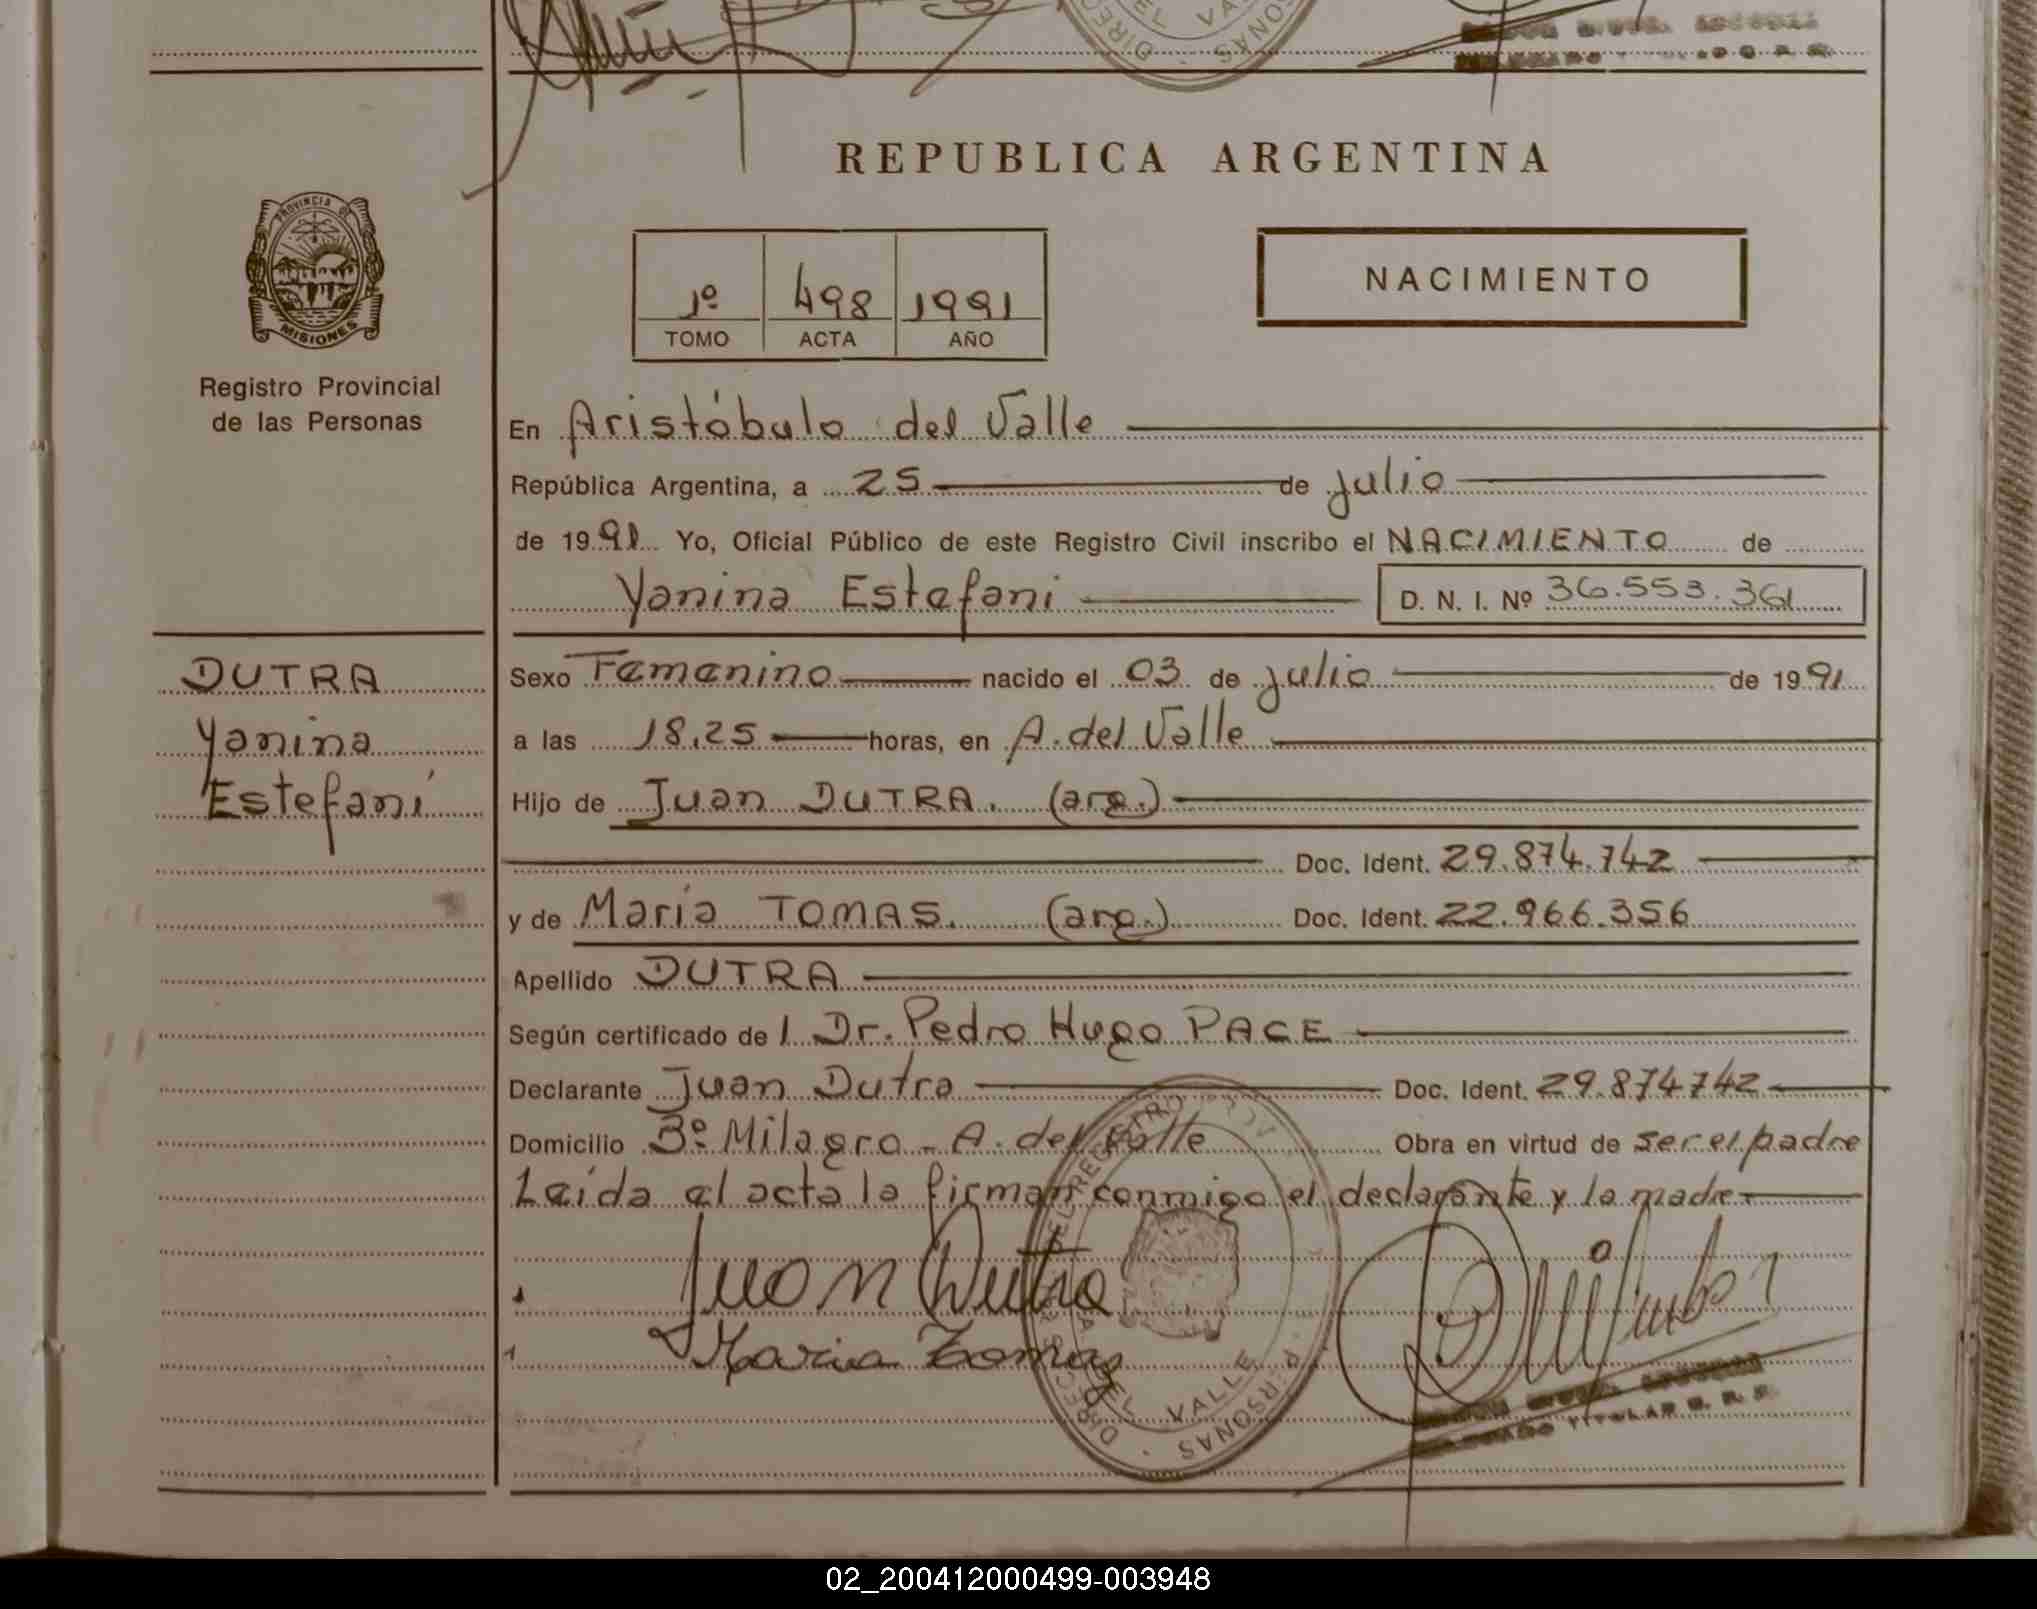 DIREC
EL VA
SONAS
REPUBLICA ARGENTINA
PROVINCIA DE
MISIONES
Registro Provincial
de las Personas
1º 498 1991
TOMO ACTA AÑO
NACIMIENTO
En Aristóbulo del Valle
República Argentina, a 25 de julio
de 1991 Yo, Oficial Público de este Registro Civil inscribo el NACIMIENTO de
Yanina Estefani D. N. I. Nº 36.553.361
DUTRA
Yanina
Estefani
Sexo Femenino nacido el 03 de julio de 1991
a las 18,25 horas, en A. del Valle
Hijo de Juan DUTRA. (arg.)
Doc. Ident. 29.874.742
y de María TOMAS. (arg.) Doc. Ident. 22.966.356
Apellido DUTRA
Según certificado de l Dr. Pedro Hugo PACE
Declarante Juan Dutra Doc. Ident. 29.874742
Domicilio Bº Milagro - A. del Valle Obra en virtud de ser el padre
Leída el acta la firman conmigo el declarante y la madre
Juan Dutra
Maria Tomas
DEL VALLE
PERSONAS
TITULAR R. P.
02_200412000499-003948